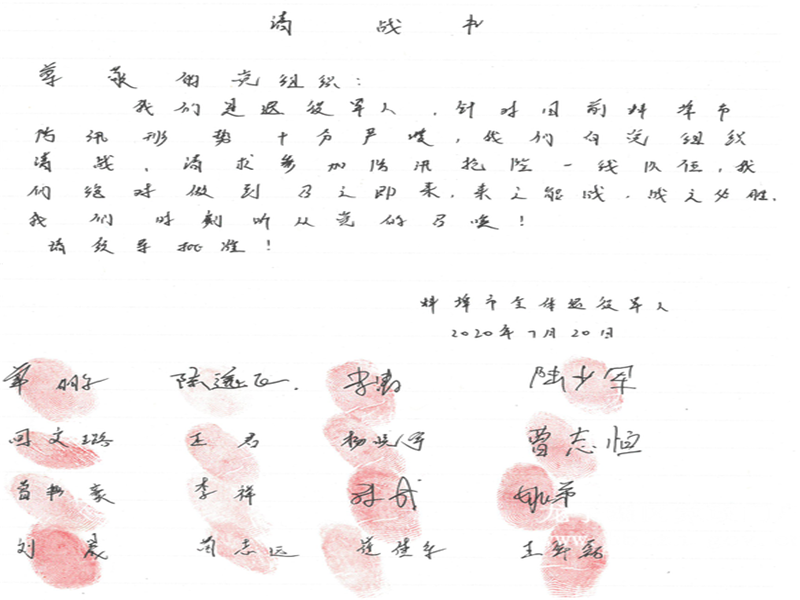 请战书
尊敬的党组织：
我们是退役军人，针对目前蚌埠市
防汛形势十分严峻，我们向党组织
请战，请求参加防汛抢险一线队伍，我
们绝对做到召之即来，来之能战，战之必胜.
我们时刻听从党的召唤！
请领导批准！
蚌埠市全体退役军人
2020年7月20日
陆远正. 李 陆少军
文璐 王君 杨 曹志恒
曹 豪 李祥 姚
刘晟 志远 崔佳 王